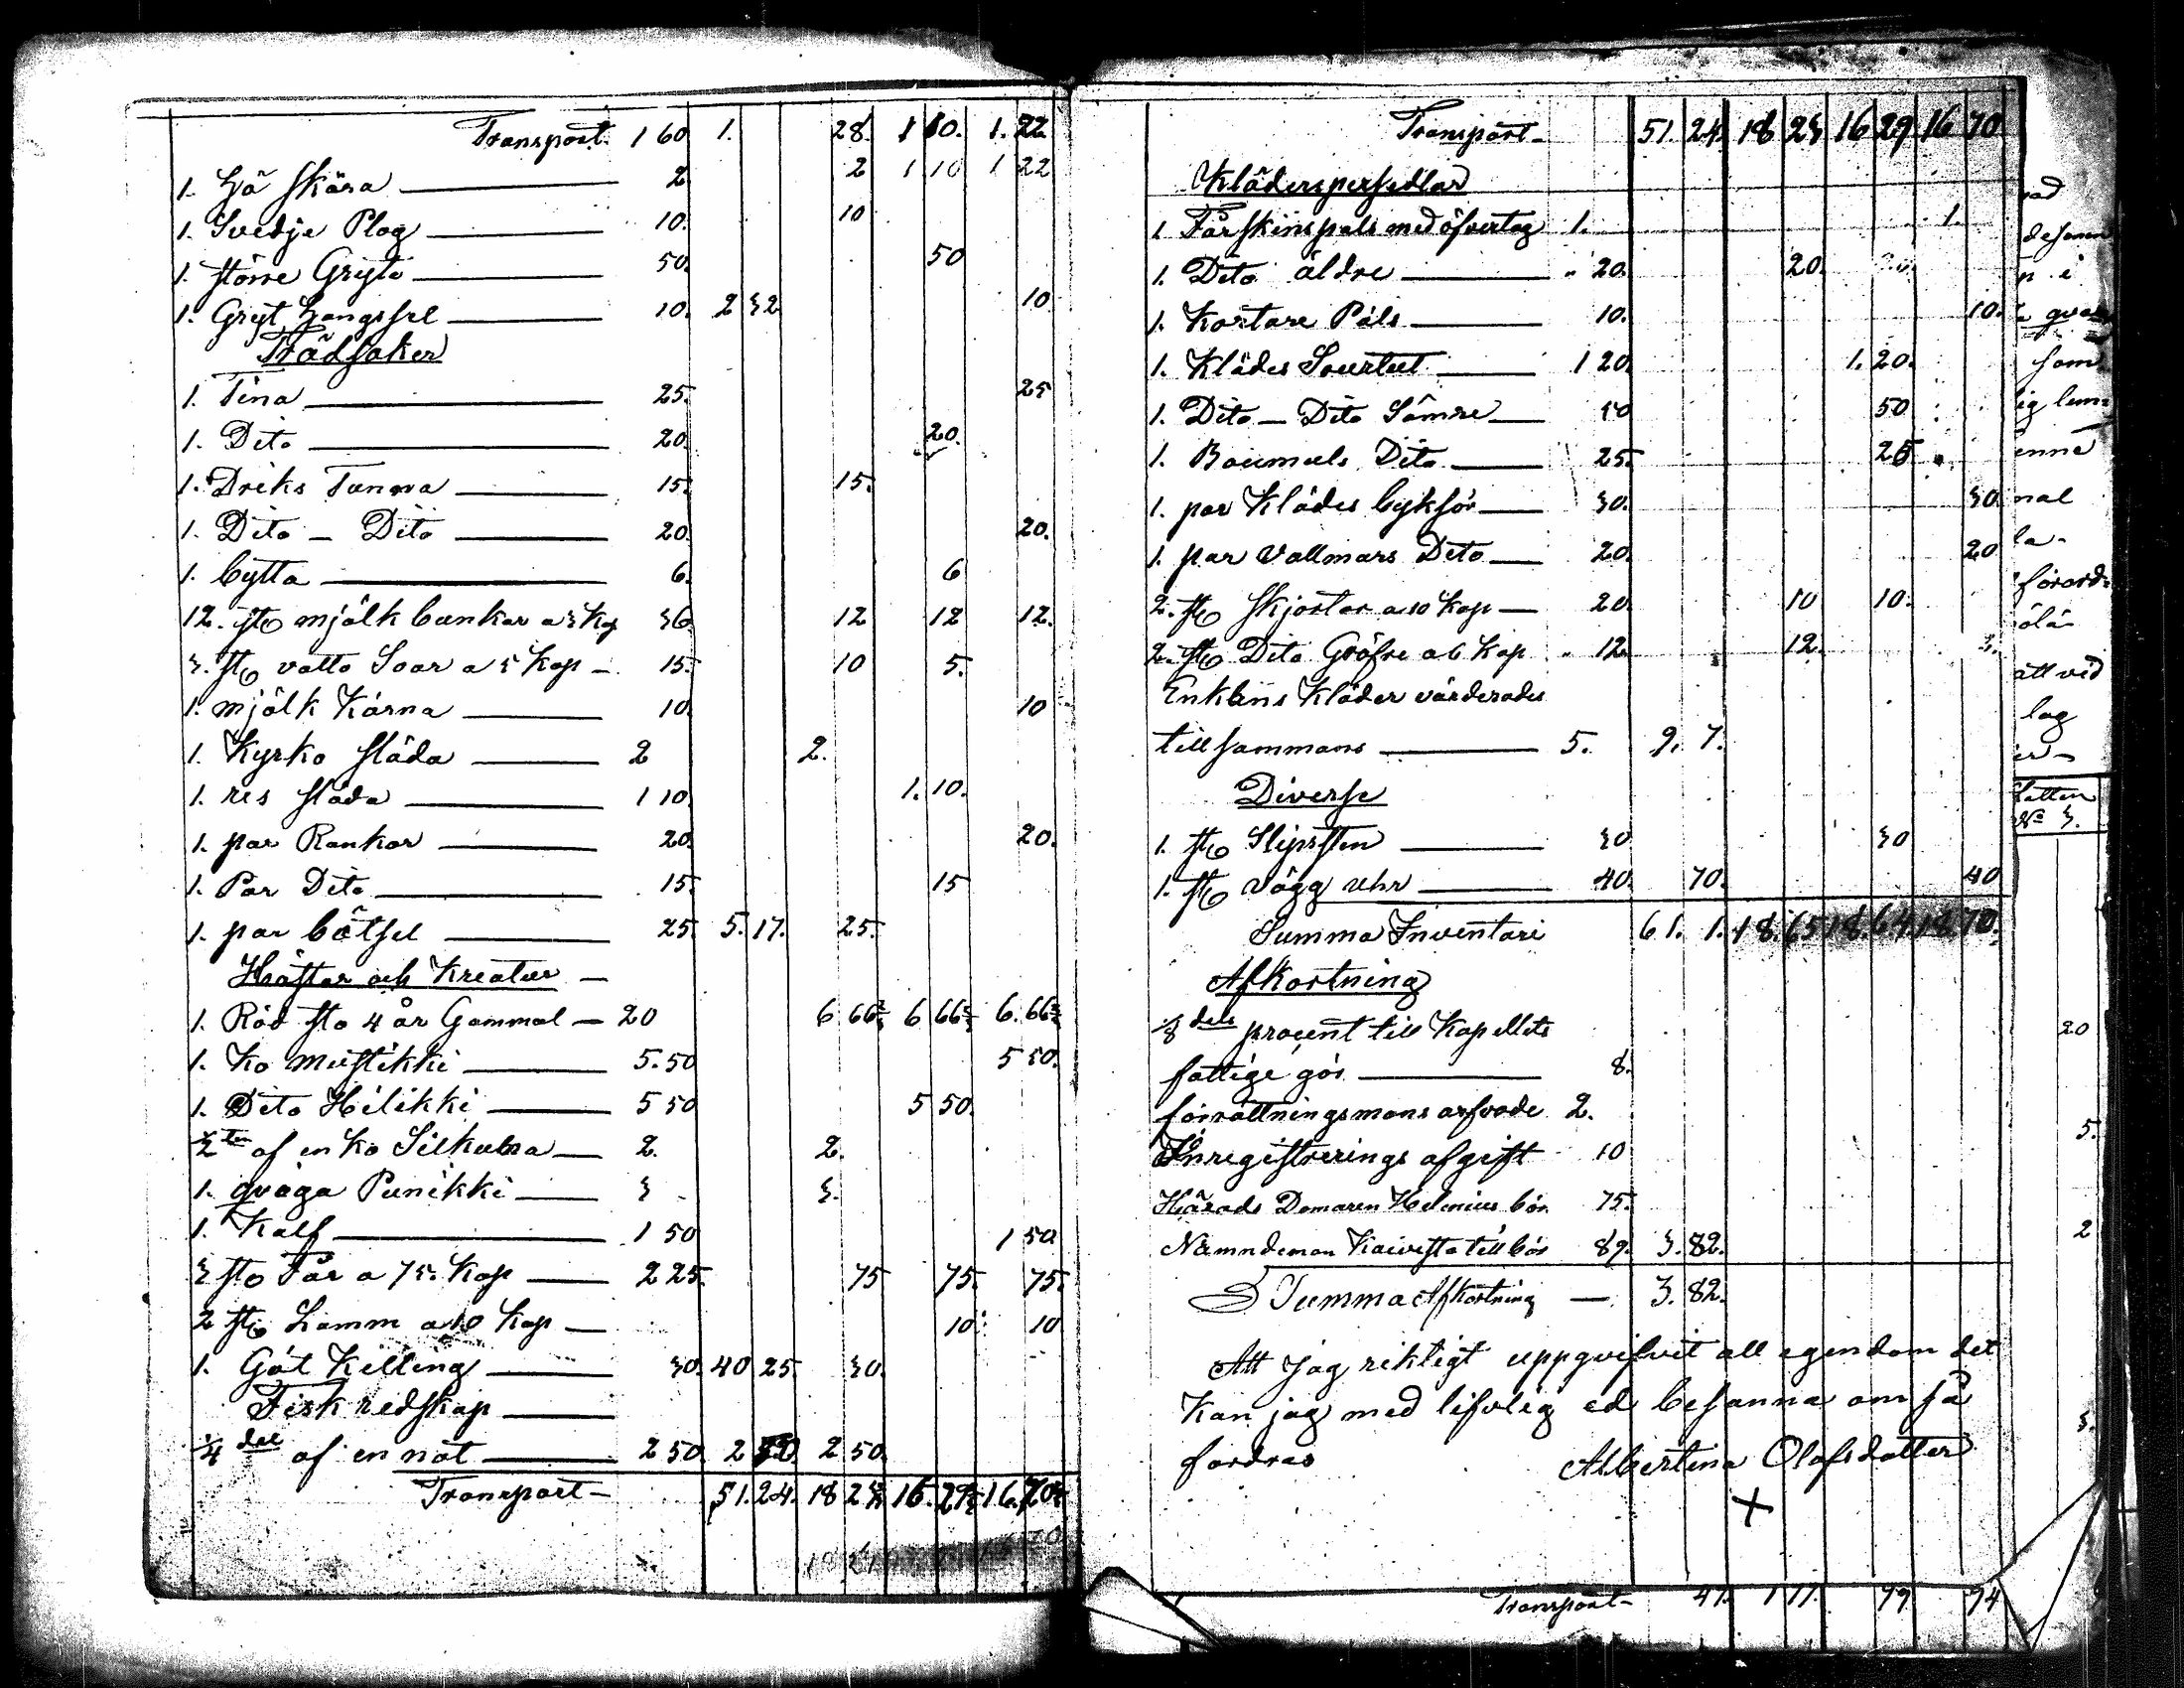 Transport 1 60 1. 28. 1 10. 1. 22
1. Hö skära — 2 2 1 10 1 22
1. Svedje Plog — 10. 10
1. större Gryta — 50. 50
1. Gryt Hängssel — 10. 2 32 10
Trädsaker
1. Tina — 25. 25
1. Dito — 20. 20.
1. Driks Tunna — 15. 15.
1. Dito — Dito — 20. 20.
1. bytta — 6. 6
12. st mjölk bunkar a 3 Kop 36 12 12 12.
3. st vatto Soar a 5 Kop — 15. 10 5.
1. mjölk Kärna — 10. 10
1. Kyrko släda — 2 2.
1. res släda — 1 10. 1. 10.
1. par Rankor — 20. 20.
1. Par Dito — 15. 15
1. par båtsel — 25. 5. 17. 25.
Hästar och Kreatur —
1. Röd sto 4 år Gammal — 20 6 66⅔ 6 66⅔ 6. 66⅔
1. Ko Mustikki — 5. 50 5 50.
1. Dito Helikki — 5 50 5 50.
½ ten af en Ko — 2. 2.
1. qviga Punikki — 3 3.
1. Kalf — 1 50 1 50
3 st Får a 75. Kop — 2 25. 75 75. 75.
2 st Lamm a 10 Kop — 10. 10
1. Göt Killing — 30. 40 25. 30.
Fisk redskap —
¼ del af en nöt — 2 50. 2 50 2 50.
Transport — 51. 24. 18 16. 16.
Transport — 51. 24. 18 23 16 29 16 70
Kläderspersedlar
1. Fårskinspals med öfvertag 1. 1.
1. Dito äldre — " 20. 20.
1. Kortare Päls — 10. 10.
1. Klädes Sourtut — 1 20. 1. 20.
1. Dito — Dito Sämre — 50 50
1. Boumuls Dito — 25. 25
1. par Klädes byksör — 30. 30.
1. par Vallmars Dito — 20. 20
2. st skjortor a 10 Kop — 20. 10 10.
2. st Dito Gröfre a 6 Kop " 12. 12.
Enkans Kläder värderades
till sammans — 5. 9. 7.
Diverse
1. st Slipsten — 30 30
1. st vägg uhr — 40. 70. 40
Summa Inventarie 61. 1. 18. 65 18. 64 18. 70.
Afkortning
⅛ dels procent till Kapellets
fattige gör — 8.
förrättningsmans arfvode 2.
Inregistrerings afgift 10
Härads Domaren Helenius bör 75.
Nämndeman Kaivisto till bör 89. 3. 82.
Summa Afkortning — 3. 82.
Att jag riktigt uppgifvit all egendom det
Kan jag med lifvlig ed besanna om så
fordras Albertina Olofsdotter
X
Transport — 47. 1 11. 79 74